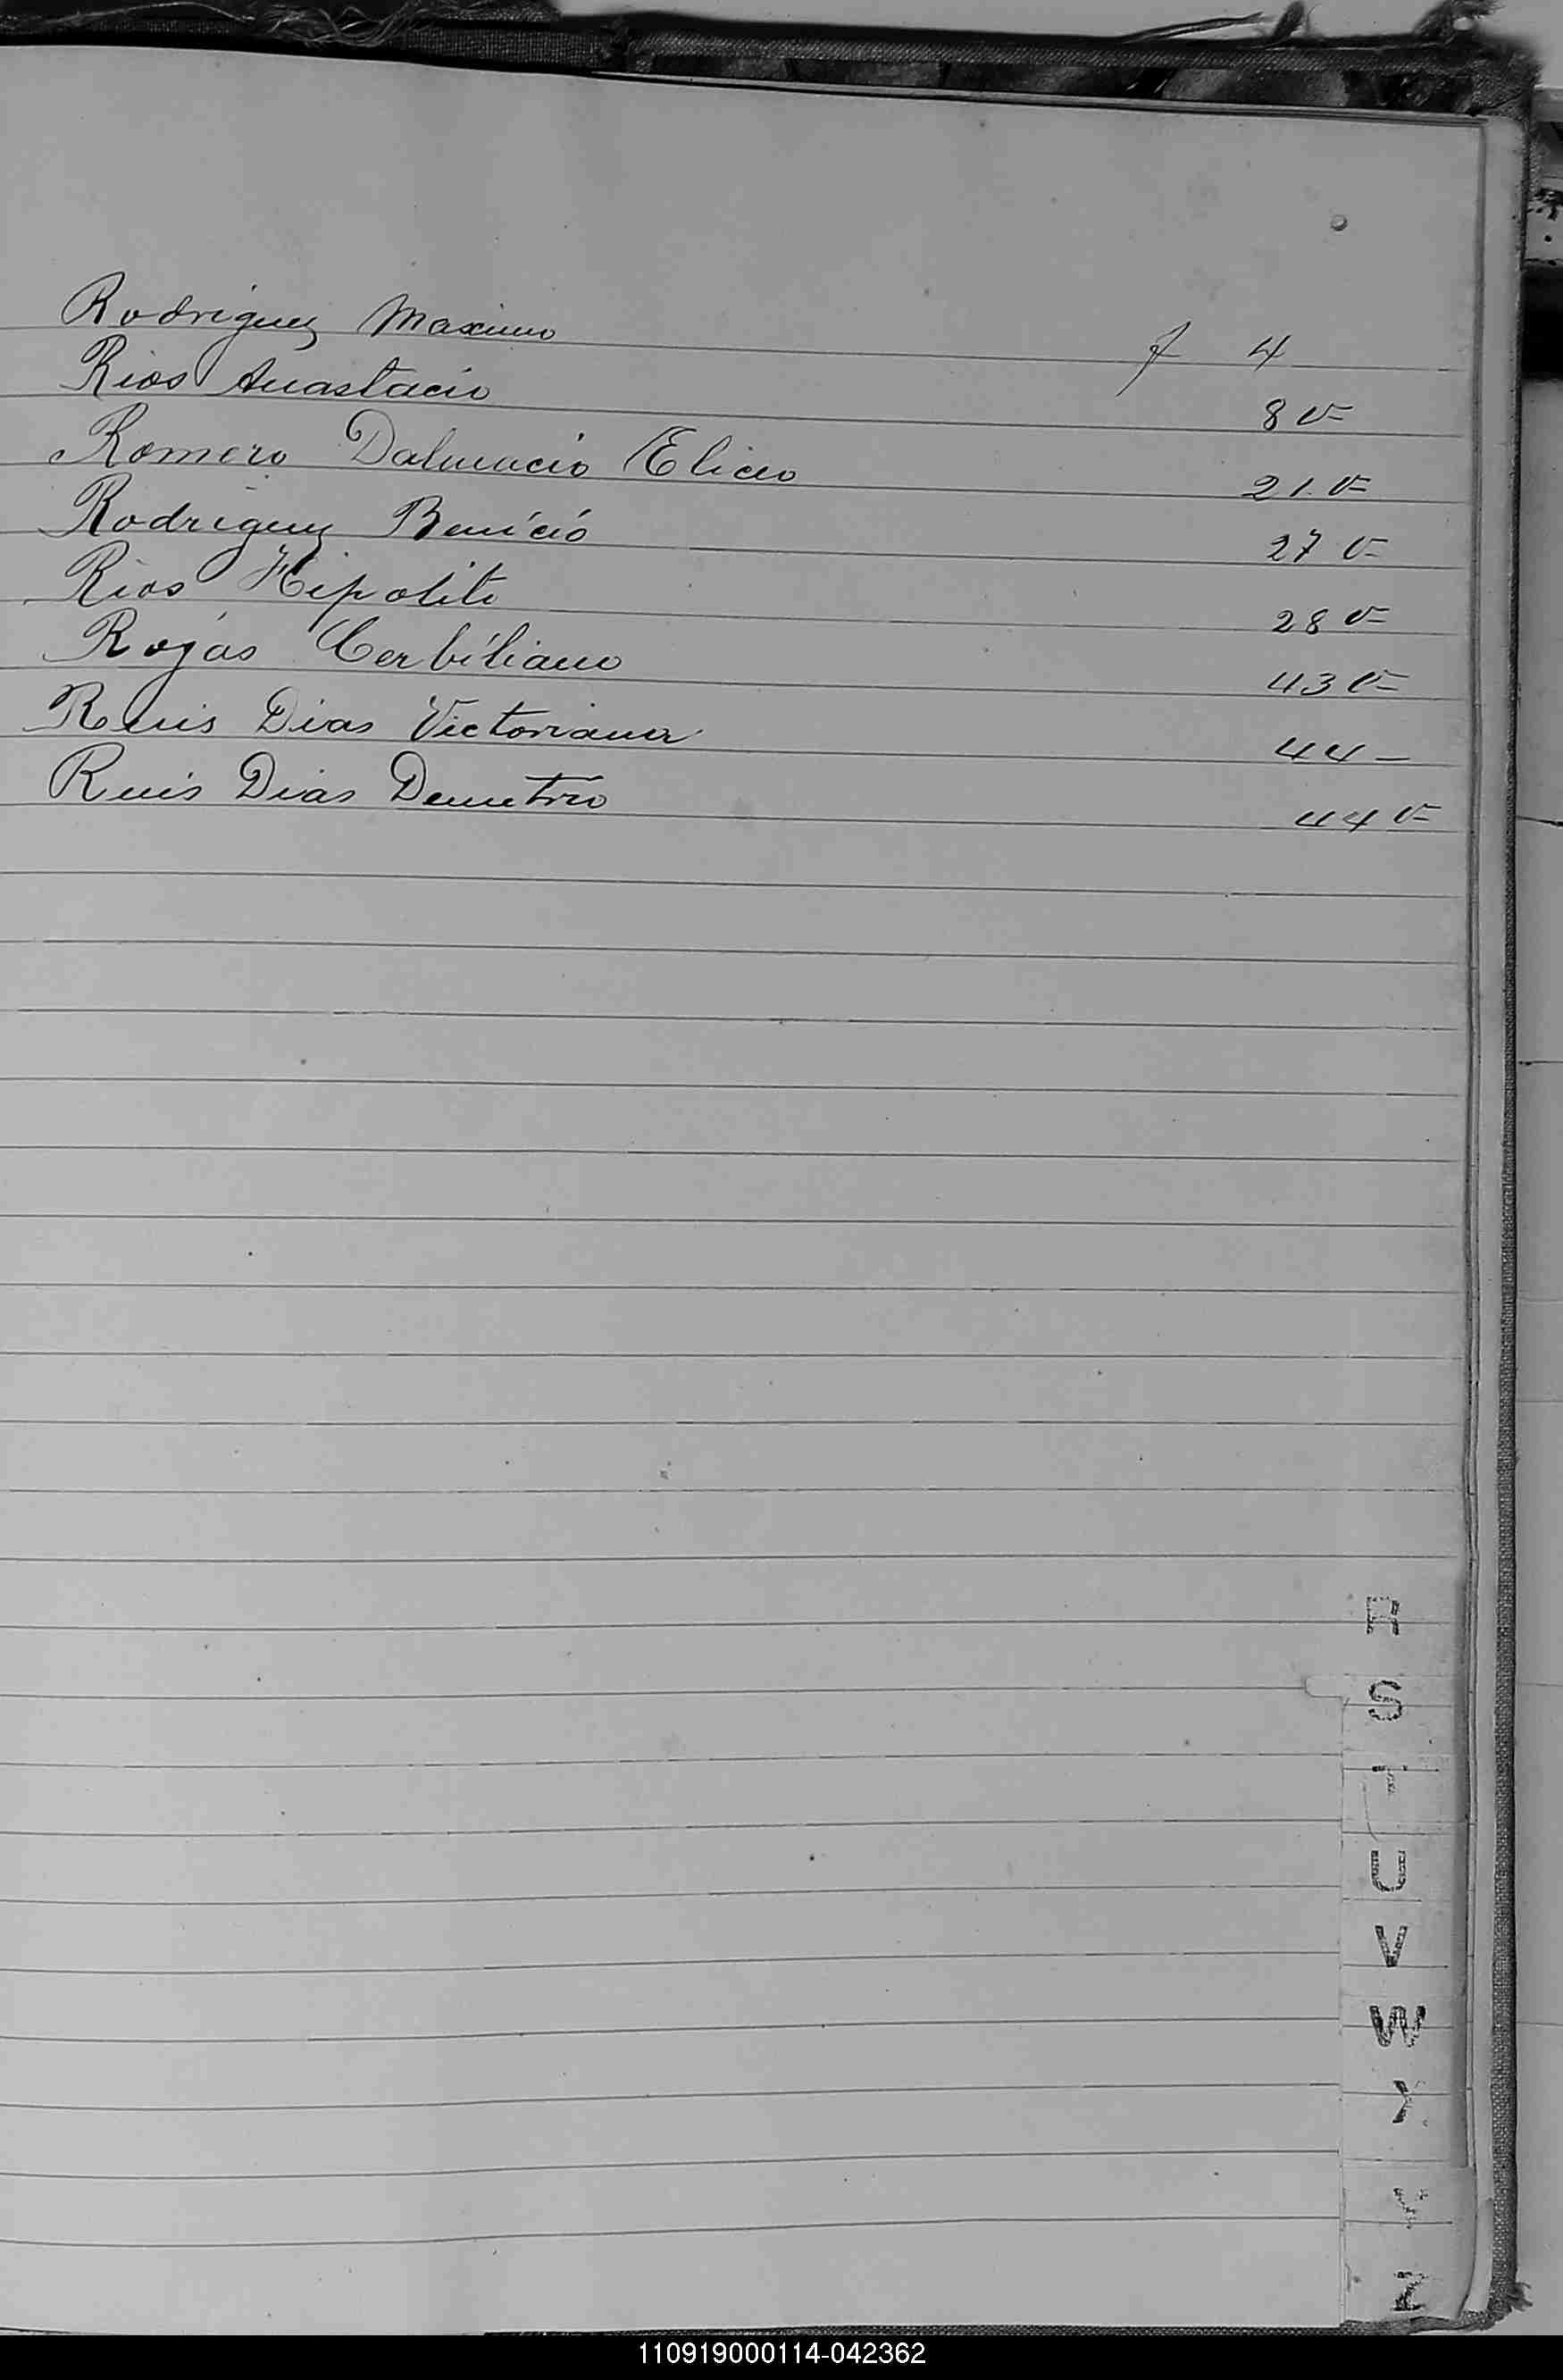 Rodriguez Maximo f 4
Rios Anastacio 8 v=
Romero Dalmacio Eliceo 21 v=
Rodriguez Benicio 27 v=
Rios Hipolito 28 v=
Rojas Cerbiliano 43 v=
Ruis Dias Victoriana 44 –
Ruis Dias Demetrio 44 v=
R
S
T
U
V
W
X
Y
Z
110919000114-042362